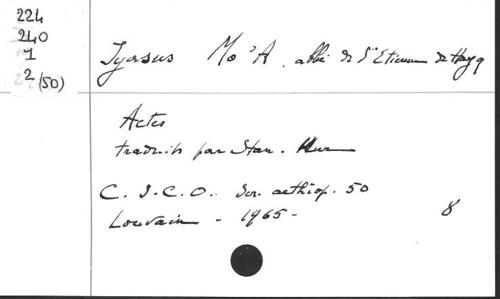 224
240
1
2 (50)
Iyasus Mo'A, abbé de St Etienne de Hayq
Actes
traduits par Stan. Kur
C. S. C. O. Scr. aethiop. 50
Louvain - 1965 -
8